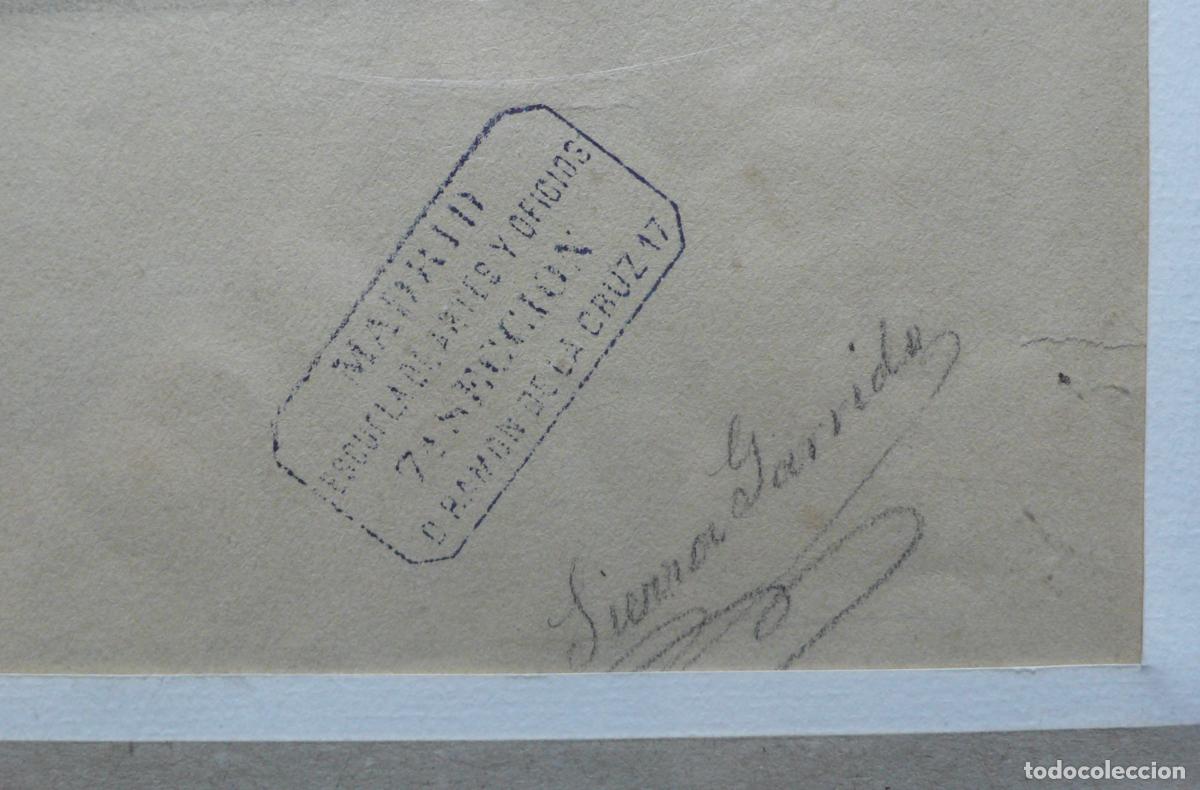 MADRID
ESCUELA DE ARTES Y OFICIOS
7ª SECCION
D RAMON DE LA CRUZ 17
Sierra Garrido
todocoleccion